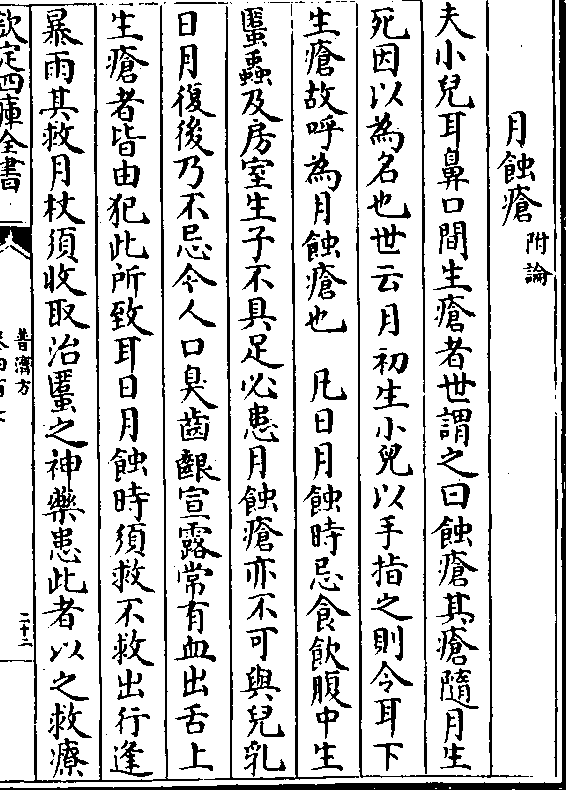 月蝕瘡附論
夫小兒耳鼻口間生瘡者世謂之曰蝕瘡其瘡隨月生
死因以為名也世云月初生小兒以手指之則令耳下
生瘡故呼為月蝕瘡也　凡日月蝕時忌食飲腹中生
䘌蟲及房室生子不具足必患月蝕瘡亦不可與兒乳
日月復後乃不忌令人口臭齒齦宣露常有血出舌上
生瘡者皆由犯此所致耳日月蝕時須救不救出行逢
暴雨其救月杖須收取治䘌之神藥患此者以之救療
欽定四庫全書
普濟方
二十二